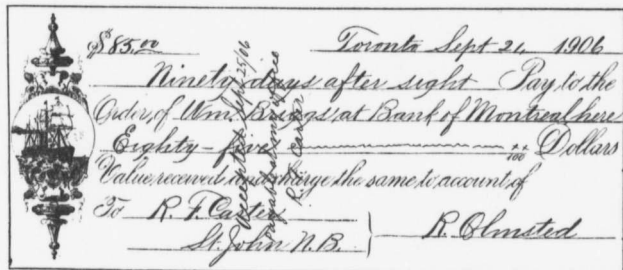 $85.00 Toronto Sept 21, 1906
Ninety days after sight Pay to the
Order of Wm. Briggs at Bank of Montreal here
Eighty-five xx/100 Dollars
Value received and charge the same to account of
To R. F. Carter
St. John N.B. R. Olmsted
Accepted Sept 25/06
R. F. Carter